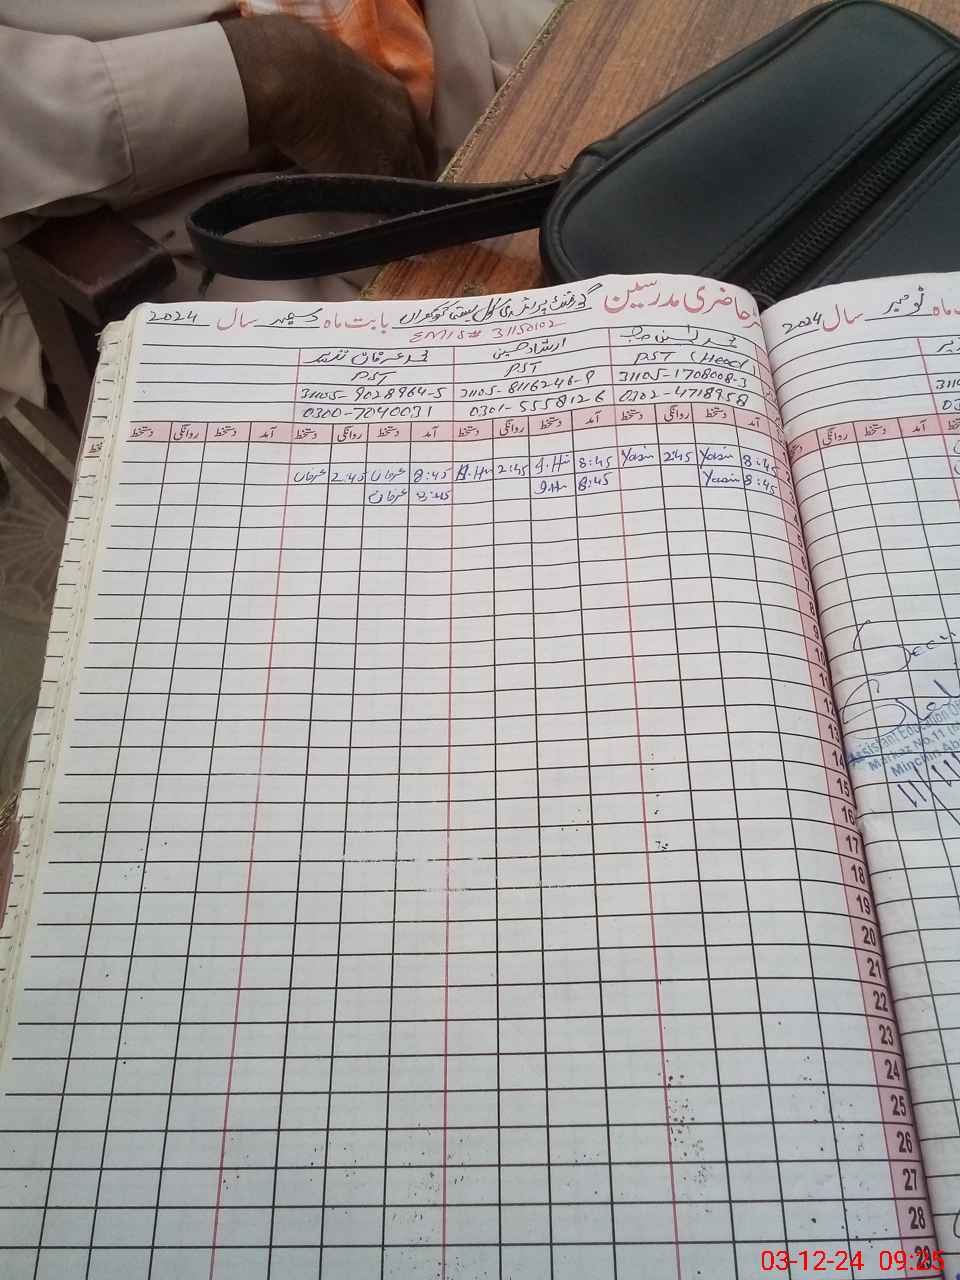 حاضری مدرسین گورنمنٹ پرائمری سکول بستی بابت ماہ دسمبر سال 2024
EMIS# 31150102
محمد یٰسین ارشاد حسین محمد عرفان
PST (Head) PST PST
31105-1708008-3 31105-8116246-9 31105-9028964-5
0302-4718958 0301-5558126 0300-7040031
آمد دستخط روانگی دستخط آمد دستخط روانگی دستخط آمد دستخط روانگی دستخط آمد دستخط روانگی دستخط
8:45 Yasin 2:45 Yasin 8:45 A.Hu 2:45 A.Hu 8:45 عرفان 2:45 عرفان
8:45 Yasin 8:45 8:45 عرفان
4
5
6
7
8
9
10
11
12
13
14
15
16
17
18
19
20
21
22
23
24
25
26
27
28
29
ماہ نومبر سال 2024
آمد دستخط روانگی دستخط
Assistant Education
Markaz No.11
Minchin Ab
03-12-24 09:25